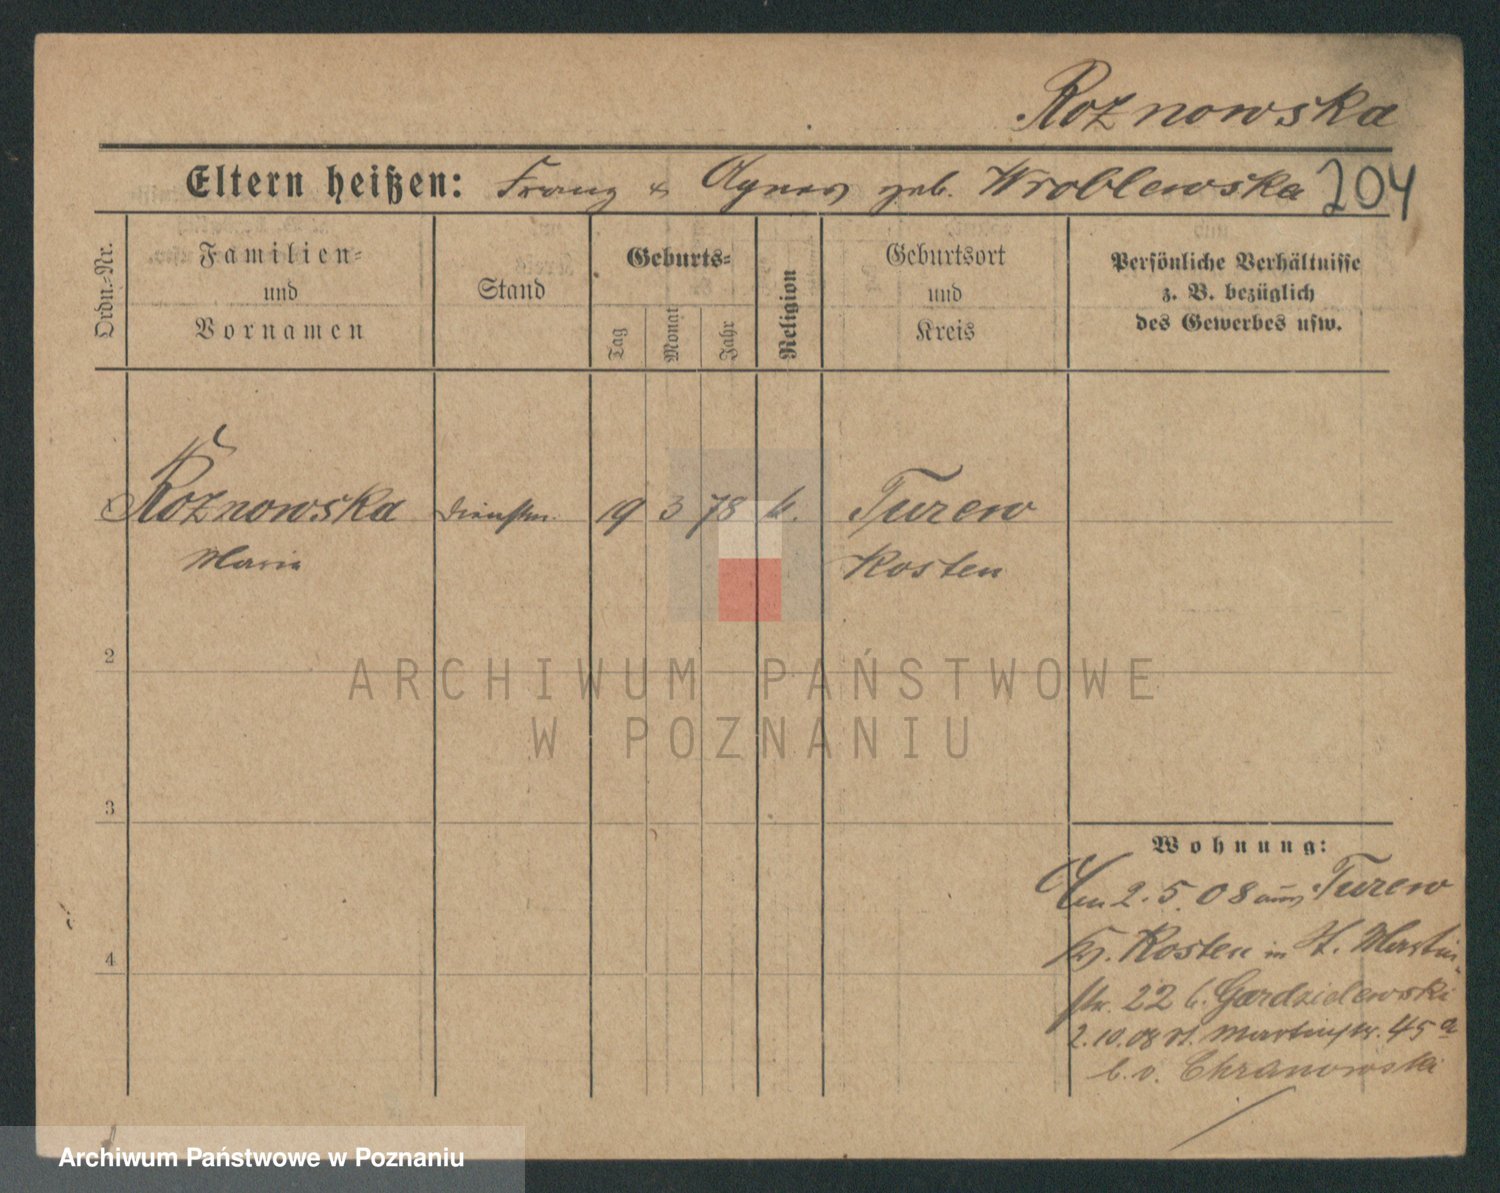 Roznowska
Eltern heißen: Franz & Agnes geb. Wroblewska 204
Ordn.-Nr.
Familien-
und
Vornamen
Stand
Geburts-
Tag
Monat
Jahr
Religion
Geburtsort
und
Kreis
Persönliche Verhältnisse
z. B. bezüglich
des Gewerbes usw.
Roznowska Dienstm. 19 3 78 k. Turew
Maria Kosten
2
ARCHIWUM PAŃSTWOWE
W POZNANIU
3
Wohnung:
Am 2.5.08 aus Turew
Kr. Kosten in St. Martin-
str. 22 b. Gardzielewski
2.10.08 St. Martinstr. 45a
b. v. Chranowski
4
Archiwum Państwowe w Poznaniu